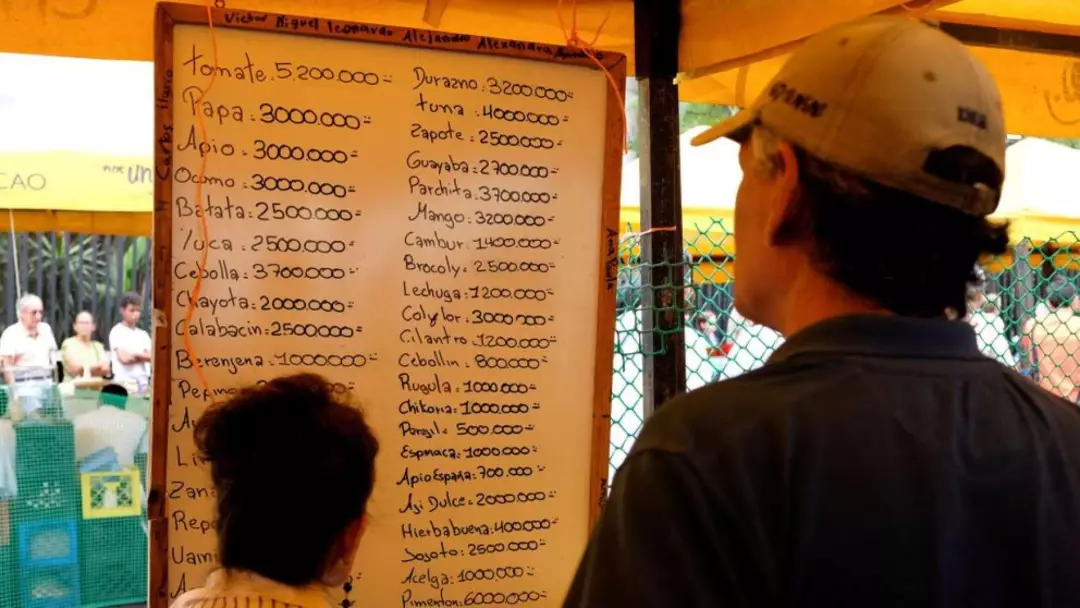 Victor Miguel Leonardo Alejandro Alexandra
Carlos
CAO
un
tomate. 5,200.000=
Papa. 3000.000=
Apio. 3000.000=
Ocomo. 3000.000=
Batata: 2500.000=
Yuca. 2500.000=
Cebolla: 3700.000=
Chayota: 2000.000=
Calabacin: 2500000=
Berenjena. 1000000=
Pepino
Zan
Repo
Durazno: 3200.000=
tuna. 4000.000=
Zapote. 2500000=
Guayaba: 2700.000=
Parchita: 3700.000=
Mango: 3200000=
Cambur: 1400.000=
Brocoly. 2500.000=
Lechuga: 1200.000=
Colyflor: 3000.000=
Cilantro. 1200.000=
Cebollin. 800.000=
Rugula: 1000.000=
Chikoria: 1000.000=
Peregil: 500.000=
Espinaca: 1000.000=
Apio España: 700.000=
Aji Dulce: 2000.000=
Hierbabuena: 400.000=
Sosoto: 2500.000=
Acelga: 1000.000=
Pimenton: 6000.000=